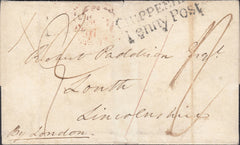 CHIPPENHAM
Penny Post
Robert Paddison Esqr.
Louth
Lincolnshire
By London.